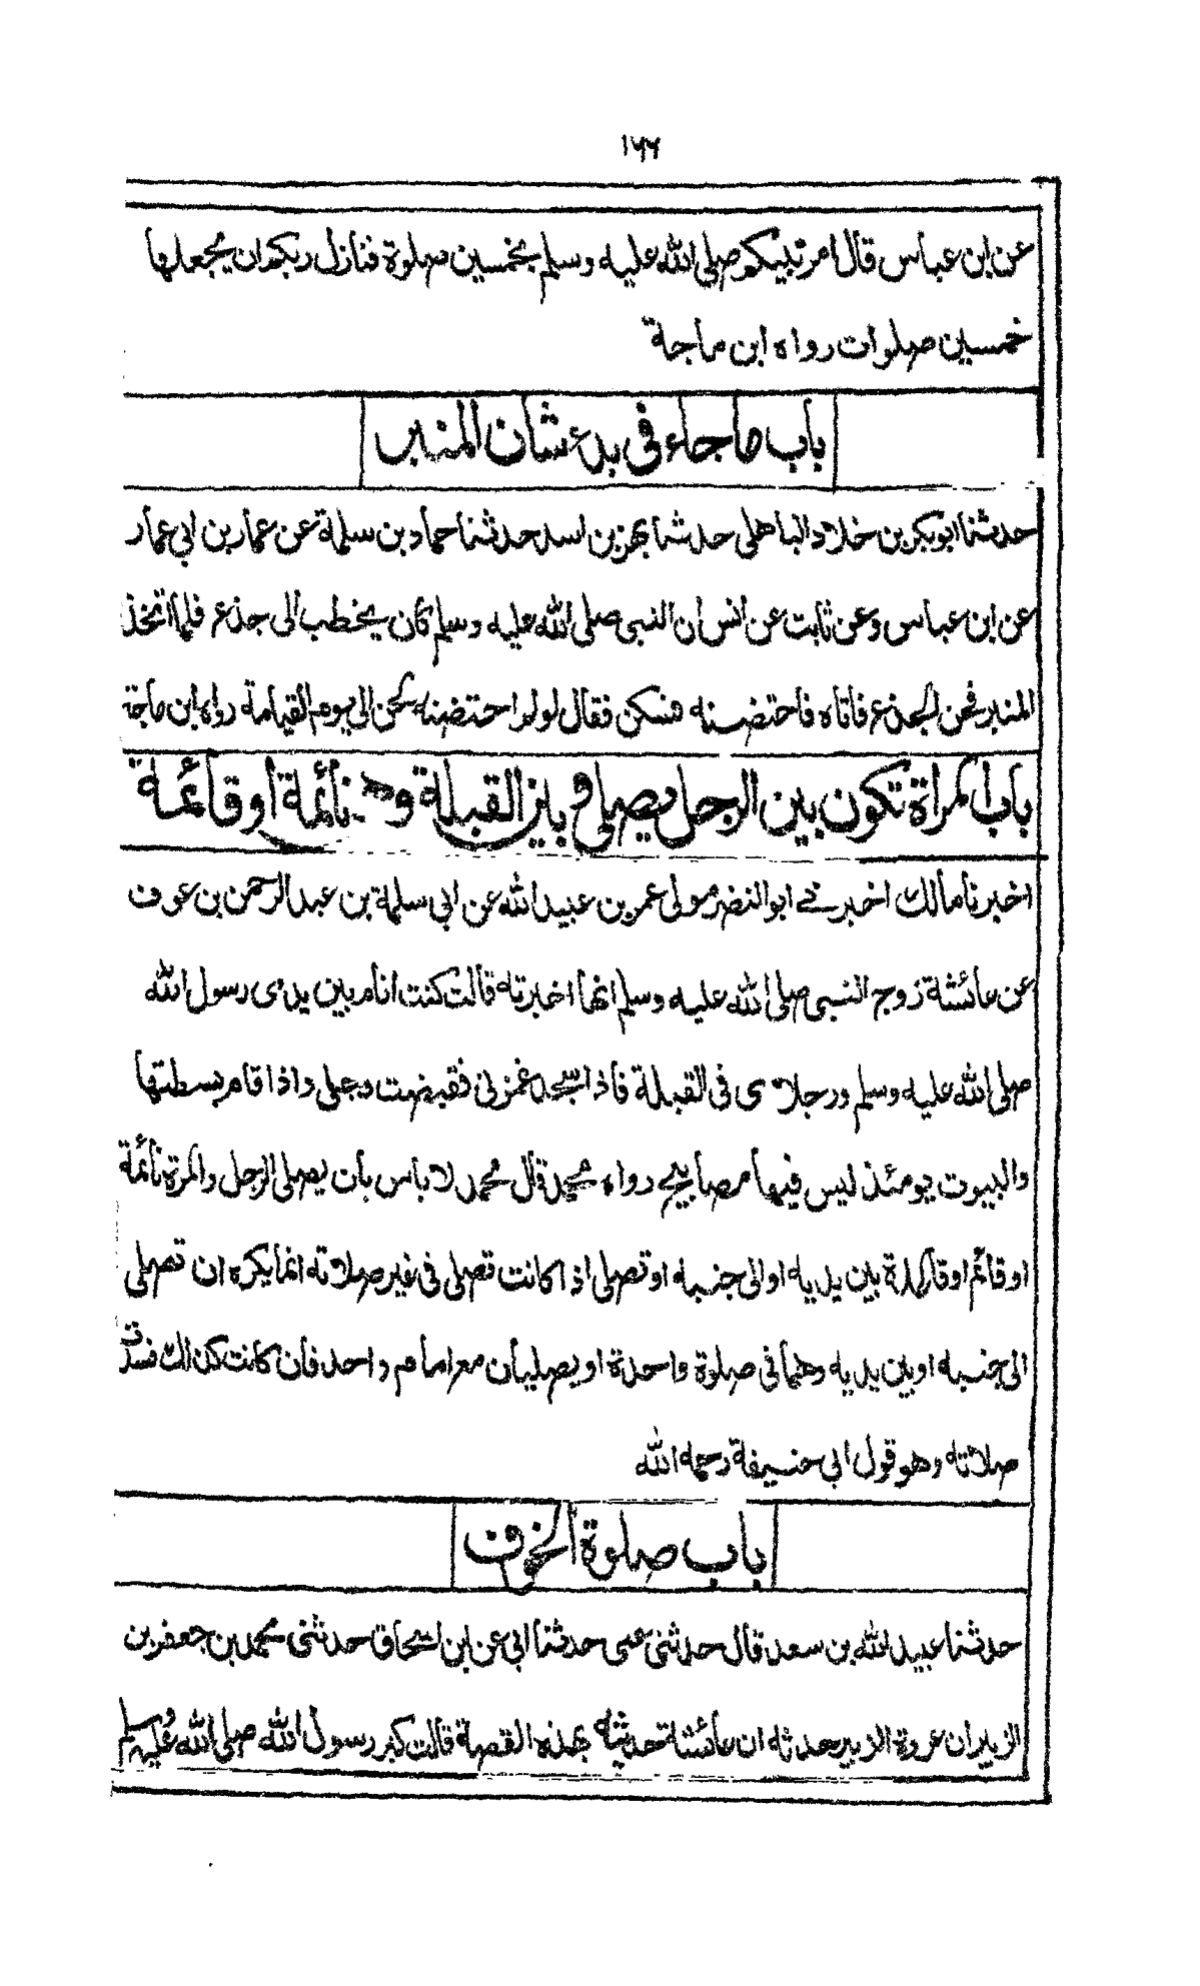 ١٦٦
عن ابن عباس قال امر نبيكم صلى الله عليه وسلم بخمسين صلوة فنازل ربكم ان يجعلها
خمسين صلوات رواه ابن ماجة
باب ماجاء فى بدء شان المنبر
حدثنا ابوبكر بن خلاد الباهلى حدثنا بهز بن اسد حدثنا حماد بن سلمة عن عمار بن ابى عمار
عن ابن عباس وعن ثابت عن انس ان النبى صلى الله عليه وسلم كان يخطب الى جذع فلما اتخذ
المنبر فحن الجذع فاتاه فاحتضنه فسكن فقال لولم احتضنه لحن الى يوم القيامة رواه ابن ماجة
باب المرأة تكون بين الرجل يصلى و بين القبلة وهى نائمة أو قائمة
اخبرنا مالك اخبرنى ابو النضر مولى عمر بن عبيد الله عن ابى سلمة بن عبد الرحمن بن عوف
عن عائشة زوج النبى صلى الله عليه وسلم انها اخبرته قالت كنت انام بين يدى رسول الله
صلى الله عليه وسلم ورجلاى فى القبلة فاذا سجد غمزنى فقبضت رجلى واذا قام بسطتها
والبيوت يومئذ ليس فيها مصابيح رواه محمد قال محمد لا باس بان يصلى الرجل والمرءة نائمة
او قائم او قاعدة بين يديه او الى جنبه او تصلى اذا كانت تصلى فى غير صلاته انما يكره ان تصلى
الى جنبه او بين يديه وهما فى صلوة واحدة او يصليان مع امام واحد فان كانت كذلك فسدت
صلاته وهو قول ابى حنيفة رحمه الله
باب صلوة الخوف
حدثنا عبيد الله بن سعد قال حدثنى عمى حدثنا ابى عن ابن اسحاق حدثنى محمد بن جعفر بن
الزبير ان عروة الزبير حدثه ان عائشة حدثته بهذه القصة قالت كبر رسول الله صلى الله عليه وسلم